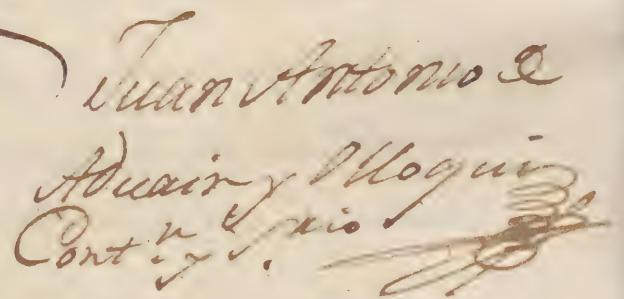 Juan Antonio de
Aduain y Olloqui
Cont.n y S.rio